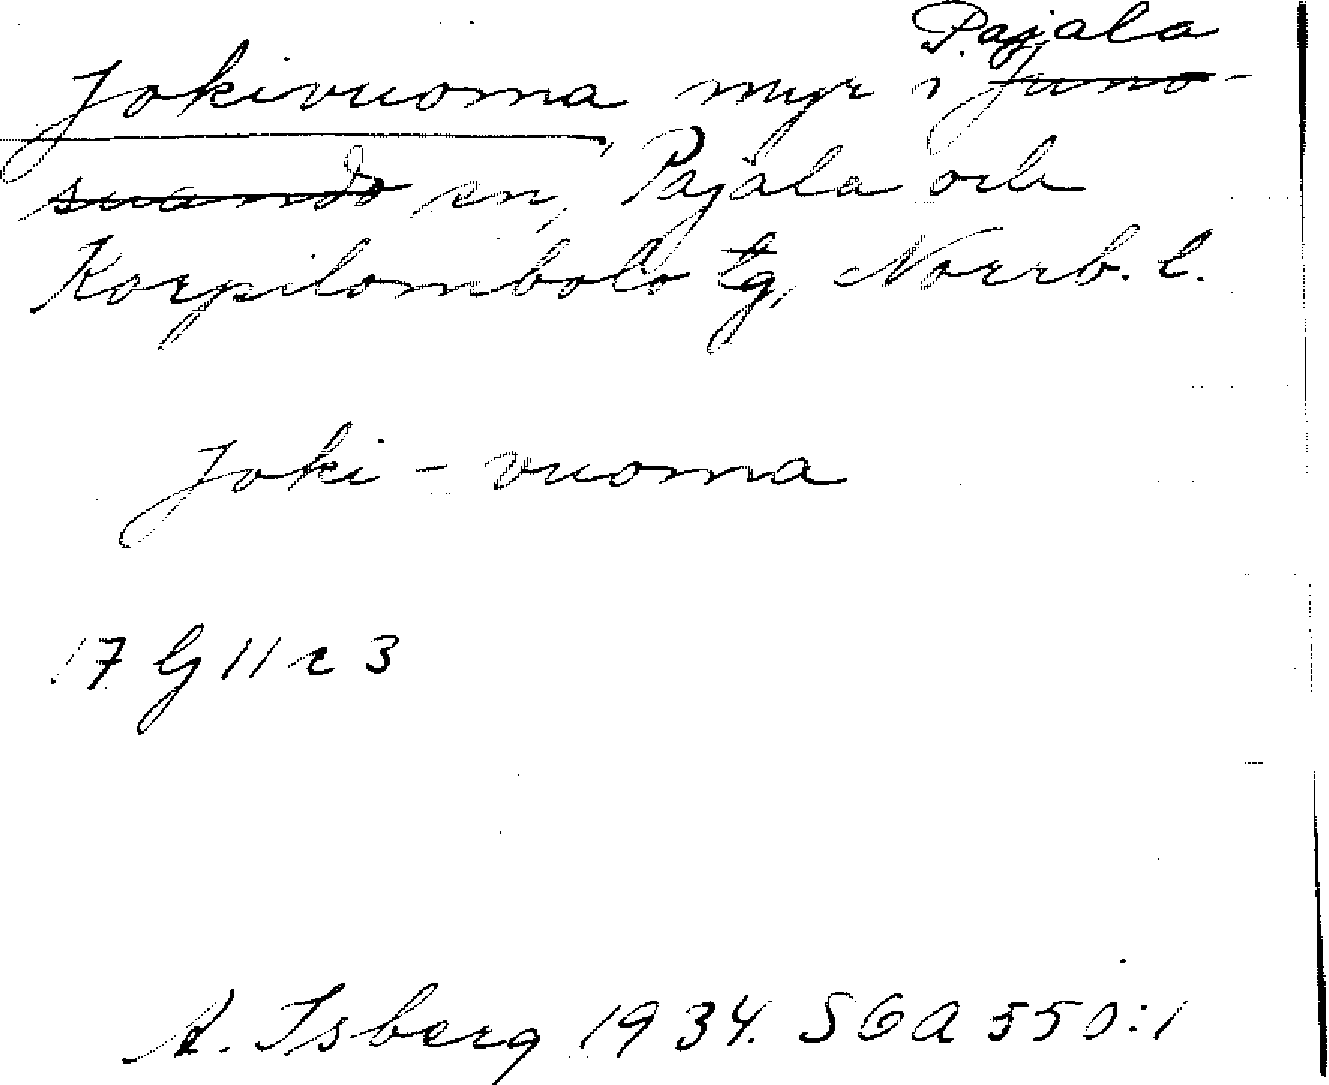 Pajala
Jokivuoma myr i Juno-
suando sn, Pajala och
Korpilombolo tg, Norrb. l.
Joki - vuoma
17 G 11 c 3
A. Isberg 1934. SGA 550:1